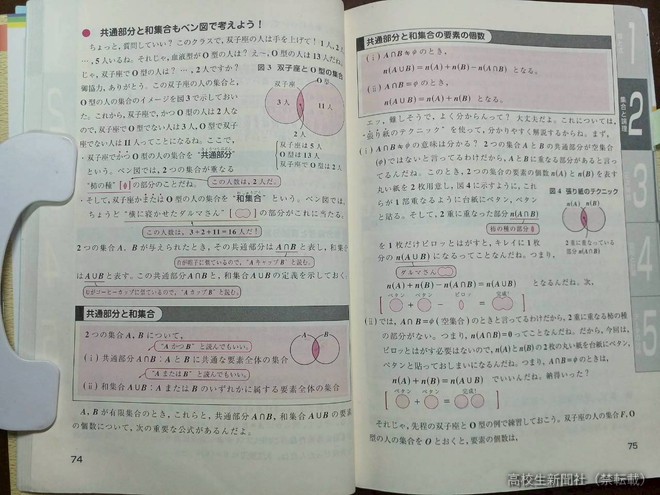 ● 共通部分と和集合もベン図で考えよう！
ちょっと，質問していい？このクラスで，双子座の人は手を上げて！1人，2人
…，5人いるね。それじゃ，血液型がO型の人は？え～，O型の人は13人だね。
じゃ，双子座でO型の人は？…，2人ですか？
御協力，ありがとう。この双子座の人の集合と，
O型の人の集合のイメージを図3で示しておい
た。これから，双子座で，かつO型の人は2人な
ので，双子座でO型でない人は3人，O型で双子
座でない人は11人ってことになるね。ここで，
・双子座でかつO型の人の集合を"共通部分"
という。ベン図では，2つの集合が重なる
"柿の種"の部分のことだね。
この人数は，2人だ。
図3 双子座とO型の集合
双子座
O型
3人
2人
11人
双子座は5人
O型は13人
双子座でO型は2人
・そして，双子座かまたはO型の人の集合を"和集合"という。ベン図では，
ちょうど"横に寝かせたダルマさん"の部分がこれに当たる。
この人数は，3+2+11=16人だ！
2つの集合A，Bが与えられたとき，その共通部分はA∩Bと表し，和集合
∩が帽子に似ているので，"AキャップB"と読む。
はA∪Bと表す。この共通部分A∩Bと，和集合A∪Bの定義を示しておく。
∪がコーヒーカップに似ているので，"AカップB"と読む。
共通部分と和集合
2つの集合A，Bについて，
"AかつB"と読んでもいい。
(ⅰ) 共通部分A∩B：AとBに共通な要素全体の集合
"AまたはB"と読んでもいい。
(ⅱ) 和集合A∪B：AまたはBのいずれかに属する要素全体の集合
A
B
A，Bが有限集合のとき，これらと，共通部分A∩B，和集合A∪Bの要素
の個数について，次の重要な公式があるんだよ。
74
共通部分と和集合の要素の個数
(ⅰ) A∩B≠φのとき，
n(A∪B)=n(A)+n(B)-n(A∩B) となる。
(ⅱ) A∩B=φのとき，
n(A∪B)=n(A)+n(B) となる。
エッ，難しそうで，よく分からんって？大丈夫だよ。これについては，
"張り紙のテクニック"を使って，分かりやすく解説するからね。まず，
(ⅰ) A∩B≠φの意味は分かる？2つの集合AとBの共通部分が空集合
(φ)ではないと言ってるわけだから，AとBに重なる部分があると言っ
てるんだね。このとき，2つの集合の要素の個数n(A)とn(B)を表す
丸い紙を2枚用意し，図4に示すように，これ
らが1部重なるように台紙にペタン，ペタン
と貼る。そして，2重に重なった部分n(A∩B)
柿の種の部分
を1枚だけピロッとはがすと，キレイに1枚
分のn(A∪B)になるってことなんだね。つまり，
ダルマさん
図4 張り紙のテクニック
n(A)
n(B)
2重に重なっている
部分n(A∩B)
n(A)+n(B)-n(A∩B)=n(A∪B) となるんだね。次，
ペタン ペタン ピロッ 完成！
(ⅱ)では，A∩B=φ(空集合)のときと言ってるわけだから，2重に重なる柿の種
の部分がない。つまり，n(A∩B)=0ってことなんだね。だから，今回は，
ピロッとはがす必要はないので，n(A)とn(B)の2枚の丸い紙を台紙にペタン，
ペタンと貼っておしまいになるんだね。つまり，A∩B=φのときは，
n(A)+n(B)=n(A∪B) でいいんだね。納得いった？
ペタン ペタン 完成！
それじゃ，先程の双子座とO型の例で練習しておこう。双子座の人の集合F，O
型の人の集合をOとおくと，要素の個数は，
75
1
2
集合と論理
3
4
5
高校生新聞社（禁転載）